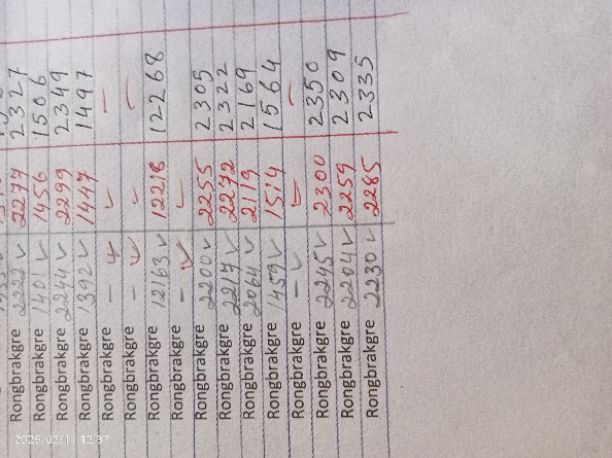 Rongbrakgre 2222 ✓ 2277 2327
Rongbrakgre 1401 ✓ 1456 1506
Rongbrakgre 2244 ✓ 2299 2349
Rongbrakgre 1392 ✓ 1447 1497
Rongbrakgre – ✓ ✓ –
Rongbrakgre – ✓ – –
Rongbrakgre 12163 ✓ 12218 12268
Rongbrakgre – ✓ –
Rongbrakgre 2200 ✓ 2255 2305
Rongbrakgre 2217 ✓ 2272 2322
Rongbrakgre 2064 ✓ 2119 2169
Rongbrakgre 1459 ✓ 1514 1564
Rongbrakgre – ✓ – –
Rongbrakgre 2245 ✓ 2300 2350
Rongbrakgre 2204 ✓ 2259 2309
Rongbrakgre 2230 ✓ 2285 2335